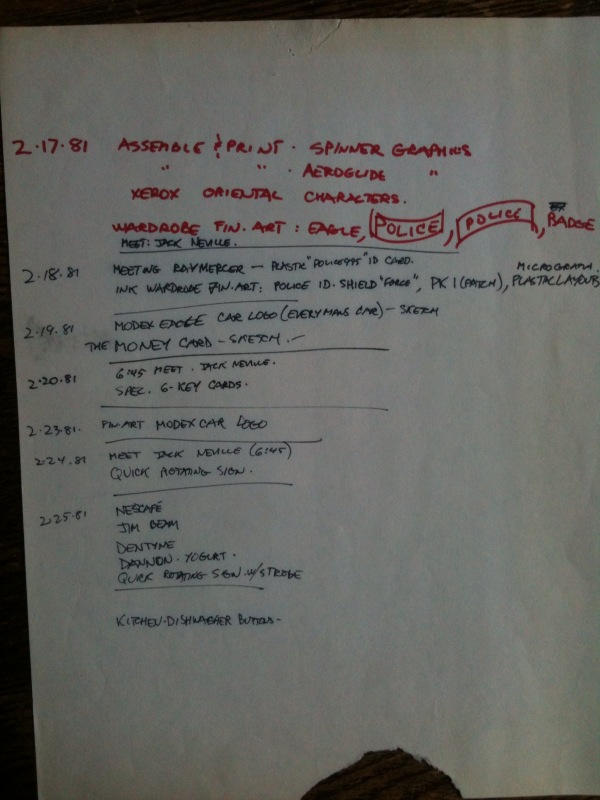 2·17·81 ASSEMBLE & PRINT · SPINNER GRAPHICS
" " · AEROGLIDE "
XEROX ORIENTAL CHARACTERS.
WARDROBE FIN. ART : EAGLE, POLICE, POLICE, BADGE
MEET: JACK NEVILLE.
2·18·81 MEETING RAY MERCER — PLASTIC "POLICE 995" ID CARD. MICROGRAPH.
INK WARDROBE FIN. ART: POLICE ID·SHIELD "FORCE", PK 1 (PATCH), PLASTIC LAYOUTS
2·19·81 MODEX EAGLE CAR LOGO (EVERY MANS CAR) — SKETCH
THE MONEY CARD — SKETCH.
2·20·81 6:45 MEET · JACK NEVILLE.
SPEC. 6-KEY CARDS.
2·23·81· FIN·ART MODEX CAR LOGO
2·24·81 MEET JACK NEVILLE (6:45)
QUICK ROTATING SIGN.
2·25·81 NESCAFÉ
JIM BEAM
DENTYNE
DANNON · YOGURT ·
QUICK ROTATING SIGN W/STROBE
KITCHEN·DISHWASHER BUTTONS—